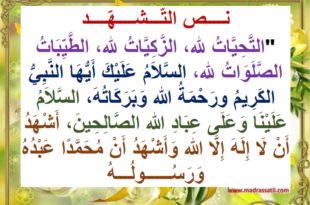 نـــص التّـــشـــهّـــد
"التَّحِيَّاتُ لله، الزَّكِيَّاتُ لله، الطَّيِّبَاتُ
الصَّلَوَاتُ لله، السَّلاَمُ عَلَيْكَ أَيُّهَا النَّبِيُّ
الكَرِيمُ ورَحْمَةُ الله وَبَرَكَاتُهُ، السَّلاَمُ
عَلَيْنَا وَعَلَى عِبَادِ الله الصَّالِحِينَ، أَشْهَدُ
أَنْ لَا إِلَهَ إِلَّا الله وَأَشْهَدُ أَنَّ مُحَمَّدًا عَبْدُهُ
وَرَسُـــولُـــهُ
www.madrassatii.com